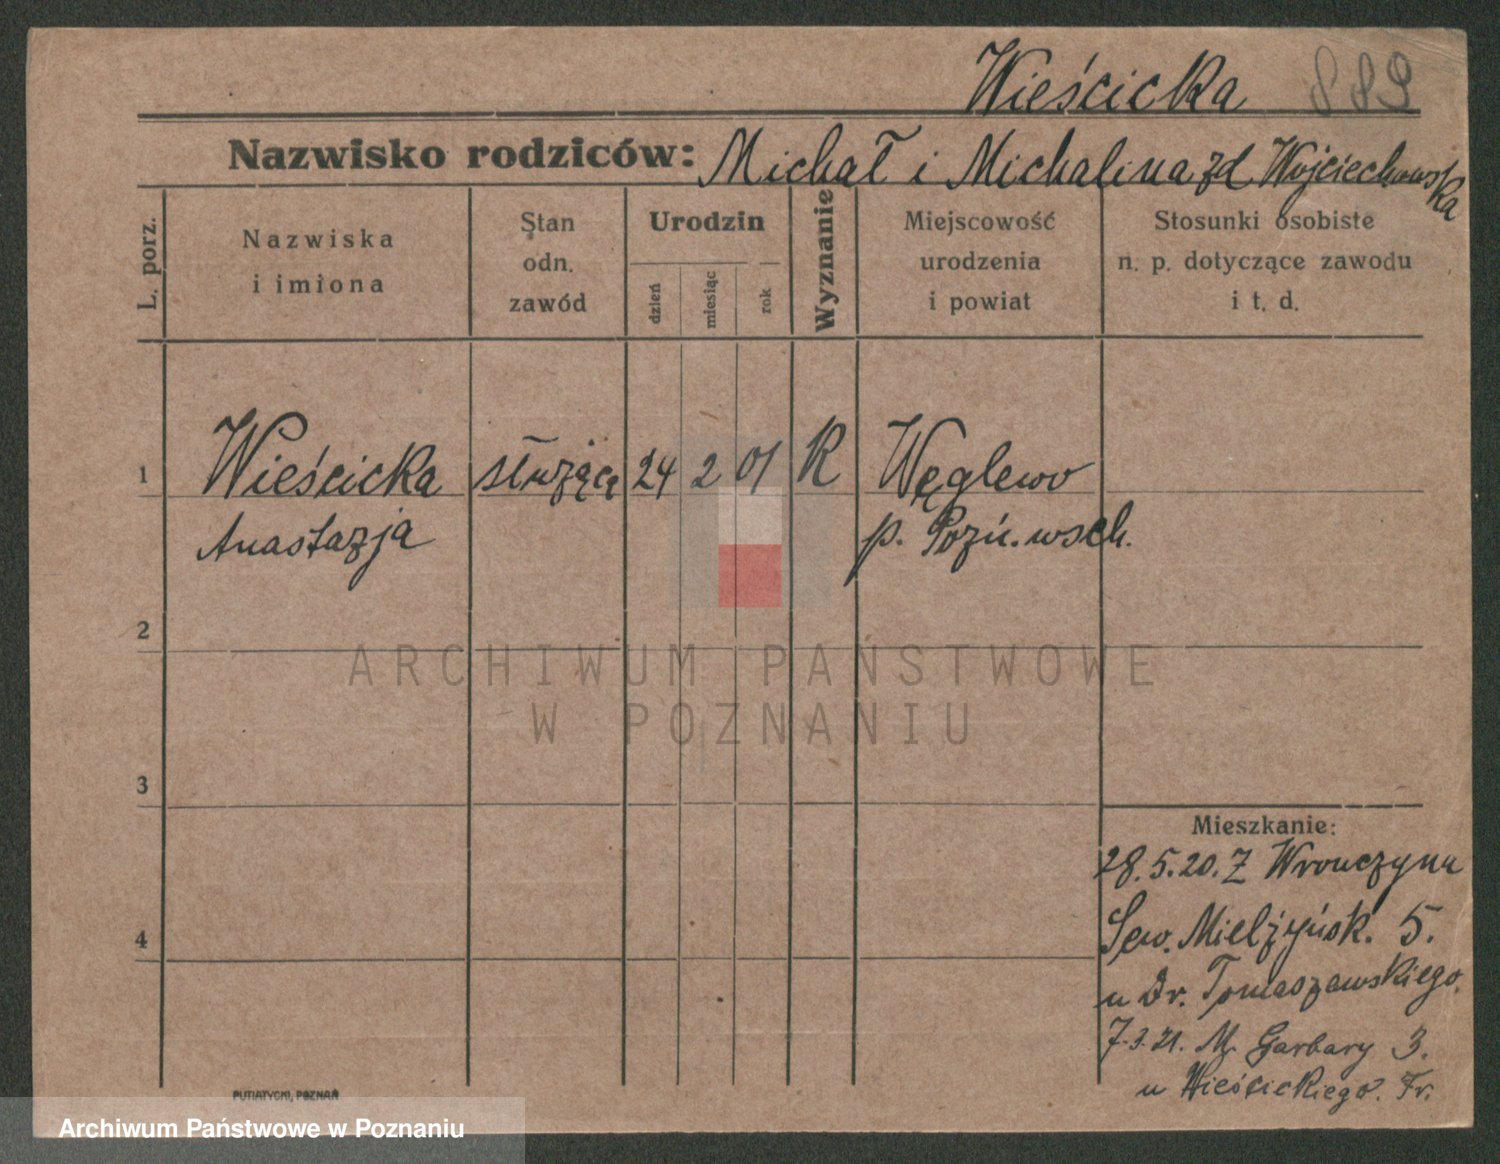 Wieścicka 889
Nazwisko rodziców: Michał i Michalina zd Wojciechowska
L. porz.
Nazwiska
i imiona
Stan
odn.
zawód
Urodzin
dzień
miesiąc
rok
Wyznanie
Miejscowość
urodzenia
i powiat
Stosunki osobiste
n. p. dotyczące zawodu
i t. d.
1 Wieścicka służąca 24 2 01 K Węglewo
Anastazja p. Pozń. wsch.
2
ARCHIWUM PAŃSTWOWE
W POZNANIU
3
Mieszkanie:
28.5.20. Z Wronczyna
4 Sew. Mielżyńsk. 5.
u Dr. Tomaszewskiego.
7.3.21. M. Garbary 3.
u Wieścickiego. Fr.
PUTIATYCKI, POZNAŃ
Archiwum Państwowe w Poznaniu